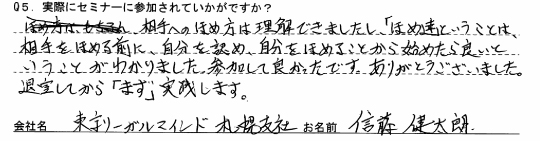 Q5．実際にセミナーに参加されていかがですか？
相手へのほめ方は理解できましたし、「ほめ達」ということは、
相手をほめる前に、自分を認め、自分をほめることから始めたら良いと
いうことがわかりました。参加して良かったです。ありがとうございました。
退室してから「まず」実践します。
会社名 東京リーガルマインド 札幌支社 お名前 信藤 健太朗